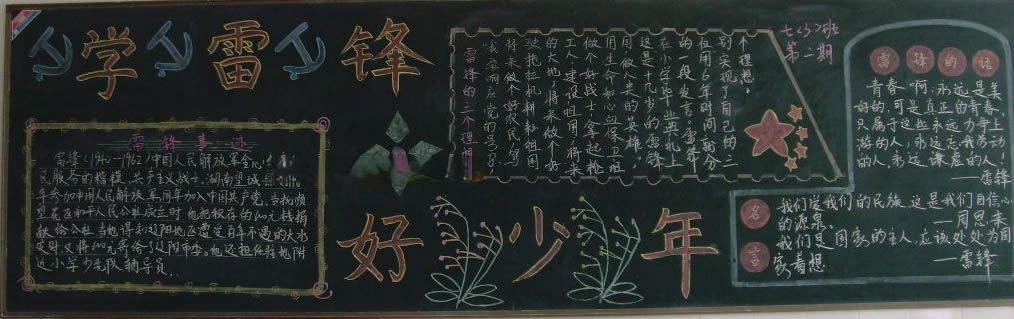 学雷锋
好少年
雷锋事迹
雷锋(1940—1962)中国人民解放军全心
民服务的楷模,共产主义战士,湖南望城县
年参加中国人民解放军同年加入中国共产党,当抚顺
望花区和平人民公社成立时他把积存的100元钱捐
献给公社,当他得知辽阳地区遭受百年不遇的大水
灾时又将100元寄给了辽阳市委。他还担任驻地附
近小学少先队辅导员。
七(3)班
第二期
个理想。
别实现了自己的三
仅用6年时间,就分
的一段发言。雷锋
在小学毕业典礼上
这是十几岁的雷锋
国,做人类的英雄。
用生命和心血保卫祖
做个好战士,拿起枪
工人建设祖国,将来
的大地,将来做个好
驶拖拉机耕耘祖国
将来做个好农民,驾
我响应党的号召,
雷锋的三个理想
雷锋的话
青春啊,永远是美
好的,可是真正的青春,
只属于这些永远力争上
游的人,永远忘我劳动
的人,永远谦虚的人!
——雷锋
名言
我们爱我们的民族,这是我们自信心
的源泉。
——周恩来
我们是国家的主人,应该处处为国
家着想
——雷锋